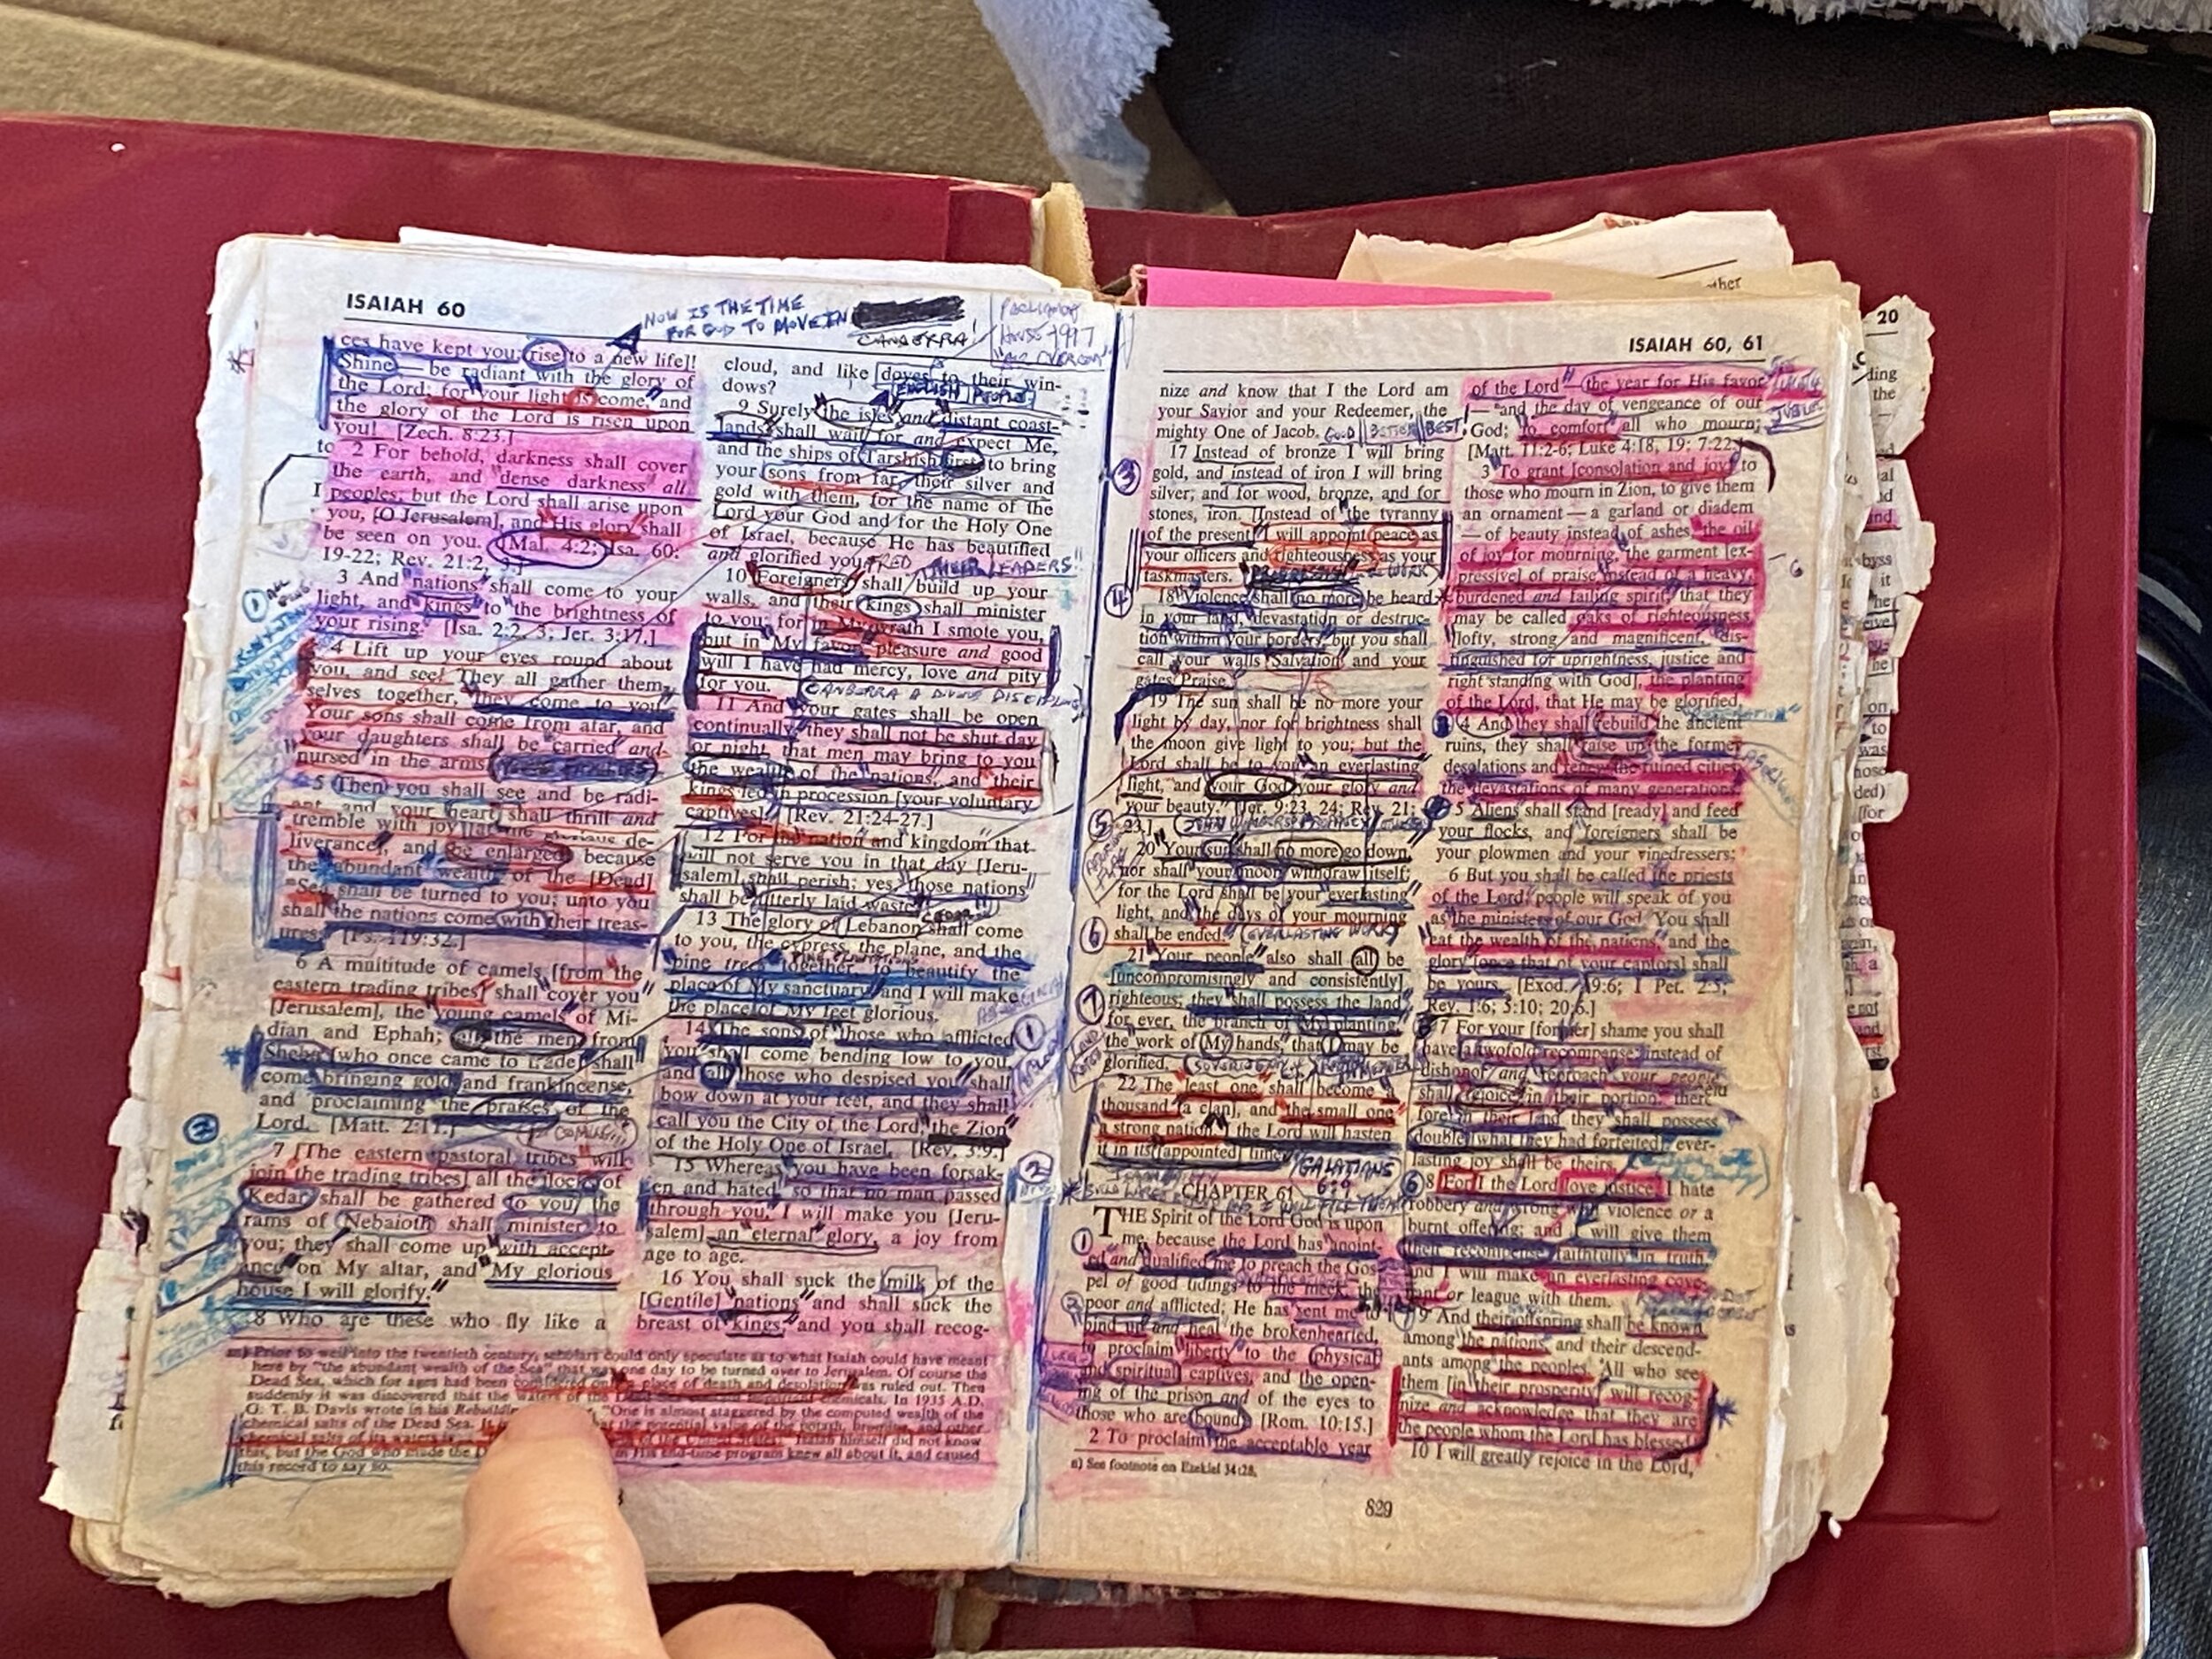 ISAIAH 60
NOW IS THE TIME
FOR GOD TO MOVE IN
CANBERRA!
PARLIAMENT
HOUSE 1997
ces have kept you; rise to a new life]!
Shine — be radiant with the glory of
the Lord; for your light is come, and
the glory of the Lord is risen upon
you! [Zech. 8:23.]
2 For behold, darkness shall cover
the earth, and dense darkness all
peoples; but the Lord shall arise upon
you, [O Jerusalem], and His glory shall
be seen on you. [Mal. 4:2; Isa. 60:
19-22; Rev. 21:2, 3.]
3 And nations shall come to your
light, and kings to the brightness of
your rising. [Isa. 2:2, 3; Jer. 3:17.]
4 Lift up your eyes round about
you, and see! They all gather them-
selves together, they come to you;
Your sons shall come from afar, and
your daughters shall be carried and
nursed in the arms.
5 Then you shall see and be radi-
ant, and your heart shall thrill and
tremble with joy [at the glorious de-
liverance], and be enlarged because
the abundant wealth of the [Dead]
Sea shall be turned to you; unto you
shall the nations come with their treas-
ures. [Ps. 119:32.]
6 A multitude of camels [from the
eastern trading tribes] shall cover you
[Jerusalem], the young camels of Mi-
dian and Ephah; all the men from
Sheba [who once came to trade] shall
come bringing gold and frankincense,
and proclaiming the praises of the
Lord. [Matt. 2:11.]
7 [The eastern pastoral tribes will
join the trading tribes] all the flocks of
Kedar shall be gathered to you, the
rams of Nebaioth shall minister to
you; they shall come up with accept-
ance on My altar, and My glorious
house I will glorify.
8 Who are these who fly like a
cloud, and like doves to their win-
dows?
ENGLISH PEOPLE
9 Surely the isles and distant coast-
lands shall wait for and expect Me,
and the ships of Tarshish first, to bring
your sons from far, their silver and
gold with them, for the name of the
Lord your God and for the Holy One
of Israel, because He has beautified
and glorified you.
THEIR LEADERS!!
10 Foreigners shall build up your
walls, and their kings shall minister
to you; for in My wrath I smote you,
but in My favor, pleasure and good
will I have had mercy, love and pity
for you.
CANBERRA A DIVINE
11 And your gates shall be open
continually, they shall not be shut day
or night, that men may bring to you
the wealth of the nations, and their
kings led in procession [your voluntary
captives]. [Rev. 21:24-27.]
12 For the nation and kingdom that
will not serve you in that day [Jeru-
salem] shall perish; yes, those nations
shall be utterly laid waste.
13 The glory of Lebanon shall come
to you, the cypress, the plane, and the
pine trees together, to beautify the
place of My sanctuary, and I will make
the place of My feet glorious.
14 The sons of those who afflicted
you shall come bending low to you,
and all those who despised you shall
bow down at your feet, and they shall
call you the City of the Lord, the Zion
of the Holy One of Israel. [Rev. 3:9.]
15 Whereas you have been forsak-
en and hated, so that no man passed
through you, I will make you [Jeru-
salem] an eternal glory, a joy from
age to age.
16 You shall suck the milk of the
[Gentile] nations and shall suck the
breast of kings; and you shall recog-
m) Prior to well into the twentieth century, scholars could only speculate as to what Isaiah could have meant
here by "the abundant wealth of the Sea" that was one day to be turned over to Jerusalem. Of course the
Dead Sea, which for ages had been considered only a place of death and desolation, was ruled out. Then
suddenly it was discovered that the waters of the Dead Sea contained important chemicals. In 1935 A.D.
G. T. B. Davis wrote in his Rebuilding "One is almost staggered by the computed wealth of the
chemical salts of the Dead Sea. It is at the potential value of the potash, bromine, and other
chemical salts of its waters is of the United States." Isaiah himself did not know
this, but the God who made the in His end-time program knew all about it, and caused
this record to say so.
ISAIAH 60, 61
nize and know that I the Lord am
your Savior and your Redeemer, the
mighty One of Jacob.
GOOD BETTER BEST!
17 Instead of bronze I will bring
gold, and instead of iron I will bring
silver; and for wood, bronze, and for
stones, iron. [Instead of the tyranny
of the present] I will appoint peace as
your officers and righteousness as your
taskmasters.
18 Violence shall no more be heard
in your land, devastation or destruc-
tion within your borders, but you shall
call your walls Salvation and your
gates Praise.
19 The sun shall be no more your
light by day, nor for brightness shall
the moon give light to you; but the
Lord shall be to you an everlasting
light, and your God your glory and
your beauty. [Jer. 9:23, 24; Rev. 21:
23.]
20 Your sun shall no more go down,
nor shall your moon withdraw itself;
for the Lord shall be your everlasting
light, and the days of your mourning
shall be ended.
(EVERLASTING WORK)
21 Your people also shall all be
[uncompromisingly and consistently]
righteous; they shall possess the land
for ever, the branch of My planting,
the work of My hands, that I may be
glorified.
22 The least one shall become a
thousand [a clan], and the small one
a strong nation. I, the Lord will hasten
it in its [appointed] time.
GALATIANS
6:9
CHAPTER 61
THE Spirit of the Lord God is upon
me, because the Lord has anoint-
ed and qualified me to preach the Gos-
pel of good tidings to the meek, the
poor and afflicted; He has sent me to
bind up and heal the brokenhearted,
to proclaim liberty to the [physical
and spiritual] captives, and the open-
ing of the prison and of the eyes to
those who are bound, [Rom. 10:15.]
2 To proclaim the acceptable year
n) See footnote on Ezekiel 34:28.
of the Lord — the year for His favor
— and the day of vengeance of our
God; to comfort all who mourn;
[Matt. 11:2-6; Luke 4:18, 19; 7:22.]
3 To grant [consolation and joy] to
those who mourn in Zion, to give them
an ornament — a garland or diadem
— of beauty instead of ashes, the oil
of joy for mourning, the garment [ex-
pressive] of praise instead of a heavy,
burdened and failing spirit; that they
may be called oaks of righteousness
[lofty, strong and magnificent, dis-
tinguished for uprightness, justice and
right standing with God], the planting
of the Lord, that He may be glorified.
4 And they shall rebuild the ancient
ruins, they shall raise up the former
desolations and renew the ruined cities,
the devastations of many generations.
5 Aliens shall stand [ready] and feed
your flocks, and foreigners shall be
your plowmen and your vinedressers;
6 But you shall be called the priests
of the Lord; people will speak of you
as the ministers of our God. You shall
eat the wealth of the nations, and the
glory [once that of your captors] shall
be yours. [Exod. 19:6; I Pet. 2:5;
Rev. 1:6; 5:10; 20:6.]
7 For your [former] shame you shall
have a twofold recompense; instead of
dishonor and reproach your people
shall rejoice in their portion; there-
fore in their land they shall possess
double [what they had forfeited]; ever-
lasting joy shall be theirs.
8 For I the Lord love justice; I hate
robbery and wrong with violence or a
burnt offering; and I will give them
their recompense faithfully in truth,
and I will make an everlasting cove-
nant or league with them.
9 And their offspring shall be known
among the nations, and their descend-
ants among the peoples. All who see
them [in their prosperity] will recog-
nize and acknowledge that they are
the people whom the Lord has blessed.
10 I will greatly rejoice in the Lord,
829
20